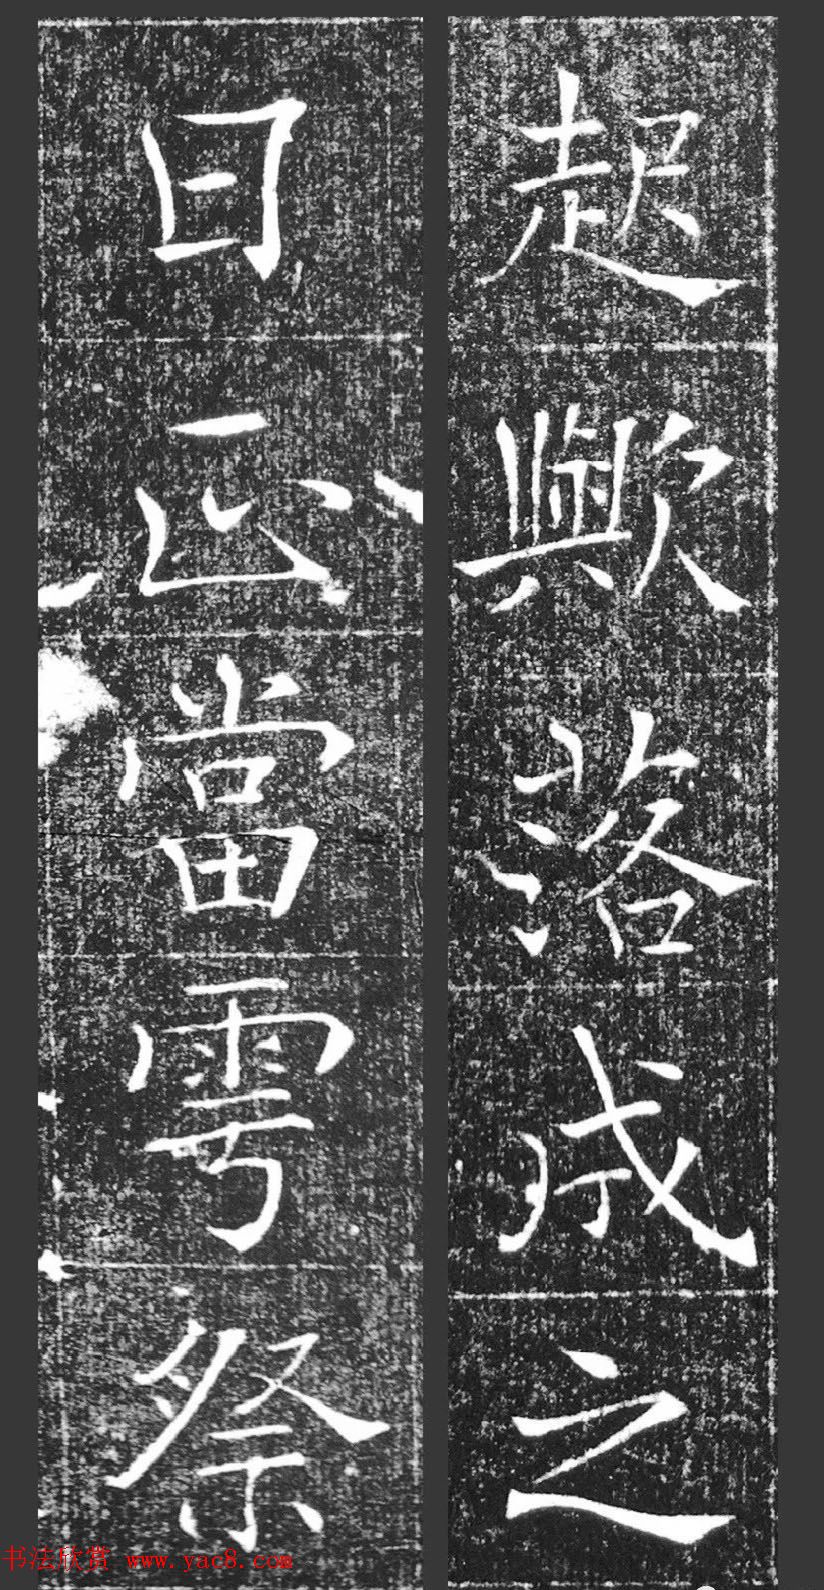 起歟落成之
日正當雩祭
书法欣赏 www.yac8.com